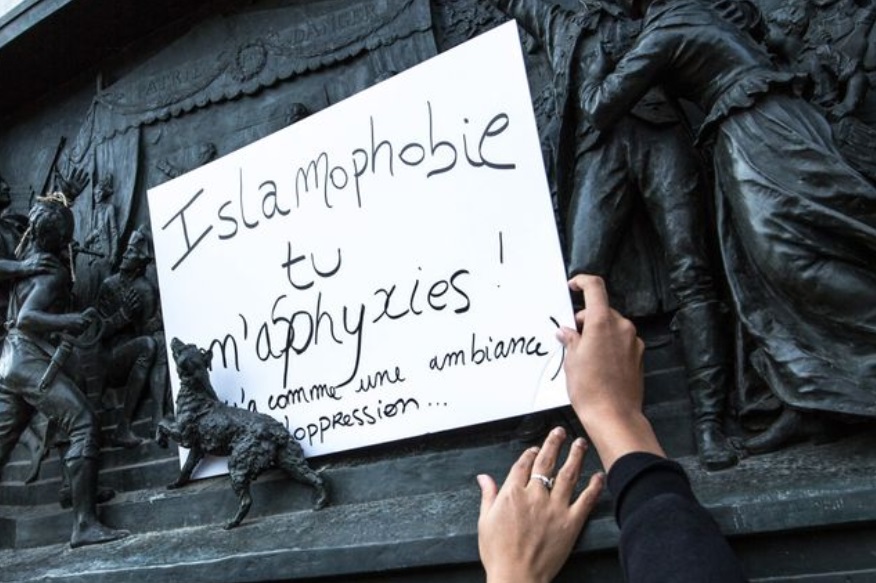 DANGER
Islamophobie
tu
m'asphyxies !
'a comme une ambiance)
oppression...